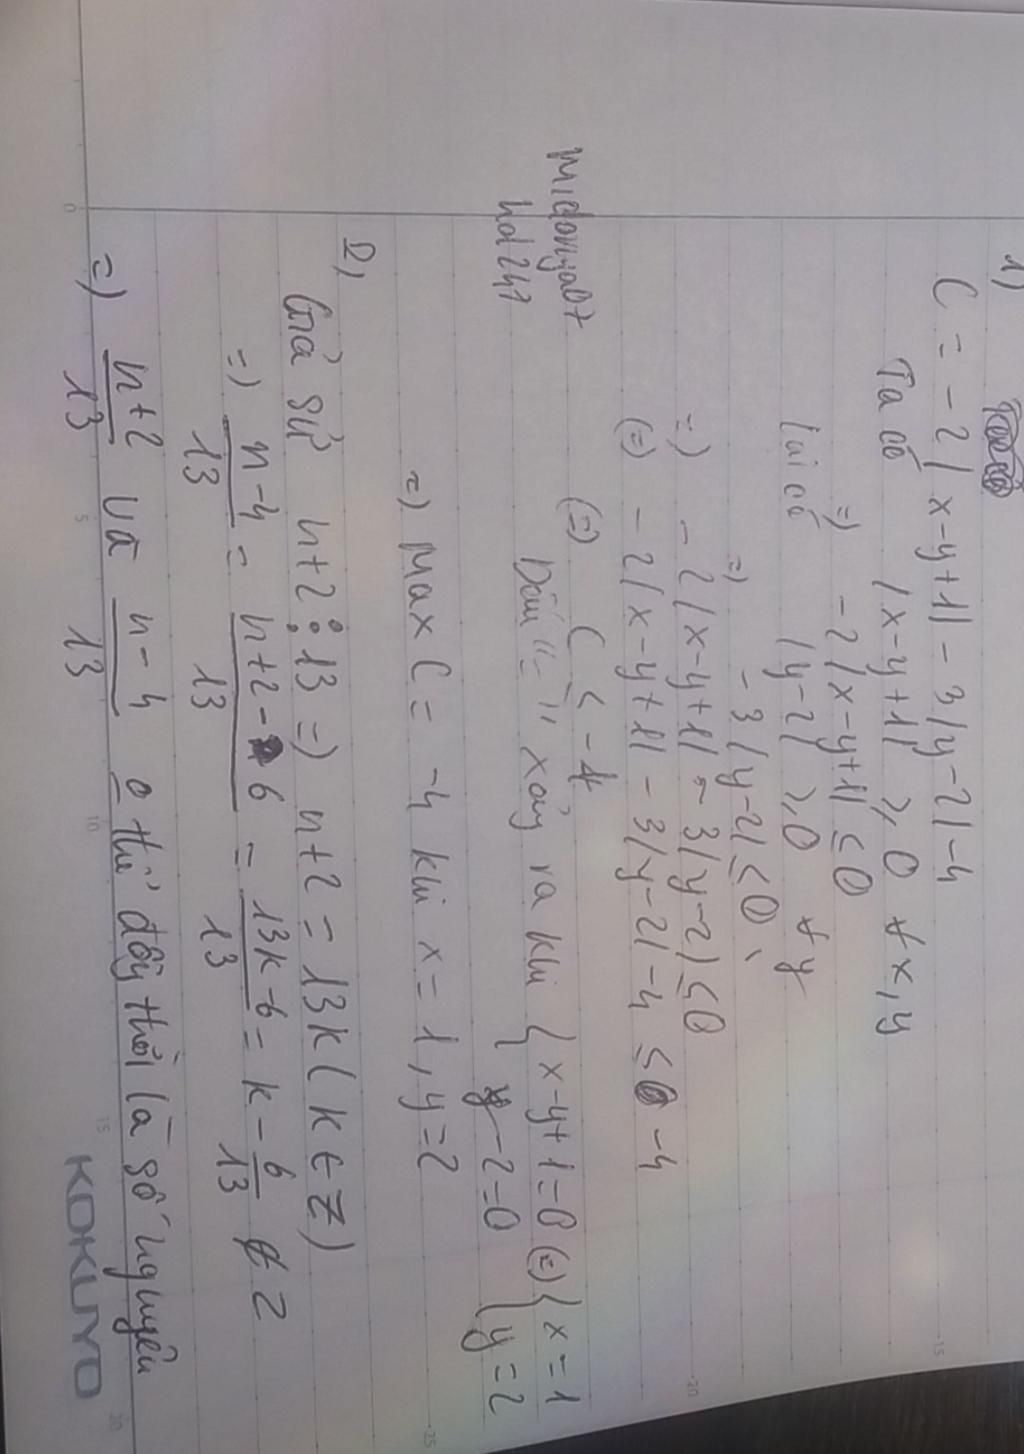 1)
C = -2|x-y+1| - 3|y-2| -4
Ta có |x-y+1| ≥ 0 ∀x,y
=) -2|x-y+1| ≤ 0
lại có |y-2| ≥ 0 ∀y
=) -3|y-2| ≤ 0
=) -2|x-y+1| - 3|y-2| ≤ 0
(=) -2|x-y+1| - 3|y-2| -4 ≤ -4
(=) C ≤ -4
Dấu "=" xảy ra khi { x-y+1=0 (=) { x=1
y-2=0 { y=2
=) Max C = -4 khi x=1, y=2
hd247
2,
Giả sử n+2 ⋮ 13 =) n+2 = 13k (k ∈ Z)
=) n-4/13 = n+2-6/13 = 13k-6/13 = k - 6/13 ∉ Z
=) n+2/13 và n-4/13 o thể đồng thời là số nguyên
KOKUYO
0 5 10 15 20
-15
-20
-25